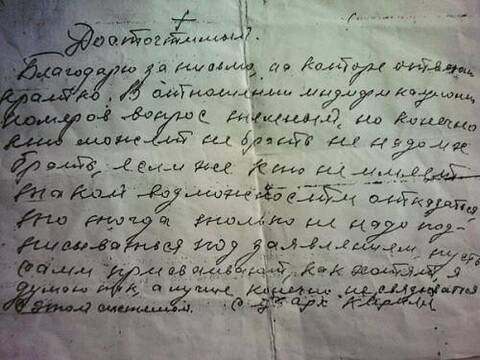 +
Досточтимый.
Благодарю за письмо, на которе ответил
кратко. В отношении индификационн
номеров вопрос сложный, но конечно
кто может не брать не надо их
брать, если же кто не имеет
такой возможности отказаться
то тогда только не надо под-
писываться под заявлением, пусть
сами присваивают как хотят я
думаю так, а лучше конечно не связываться
с этой системой. с у арх Кирилл